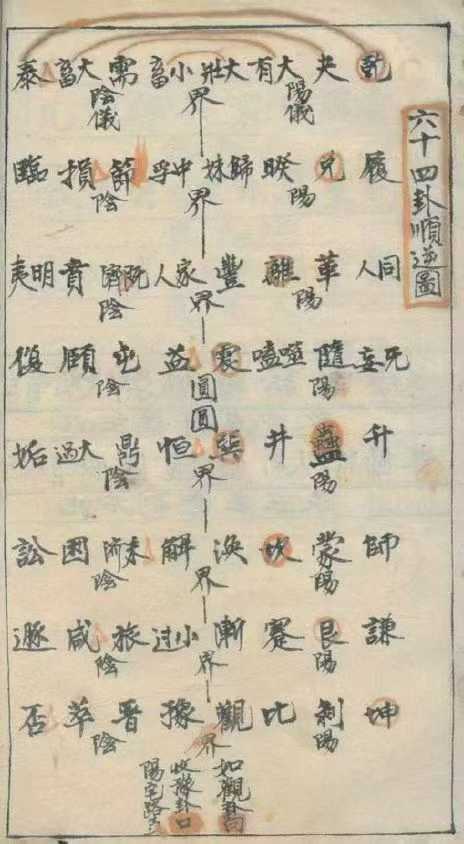 六十四卦順逆圖
乾 夬 大有 大壯 小畜 需 大畜 泰
陽儀 界 陰儀
履 兌 睽 歸妹 中孚 節 損 臨
陽 界 陰
同人 革 離 豐 家人 既濟 賁 明夷
陽 界 陰
无妄 隨 噬嗑 震 益 屯 頤 復
陽 圓 陰
圓
升 蠱 井 巽 恒 鼎 大過 姤
陽 界 陰
師 蒙 坎 渙 解 未濟 困 訟
陽 界 陰
謙 艮 蹇 漸 小过 旅 咸 遯
陽 界 陰
坤 剝 比 觀 豫 晉 萃 否
陽 界 陰
如觀卦向
收豫卦口
陽宅路